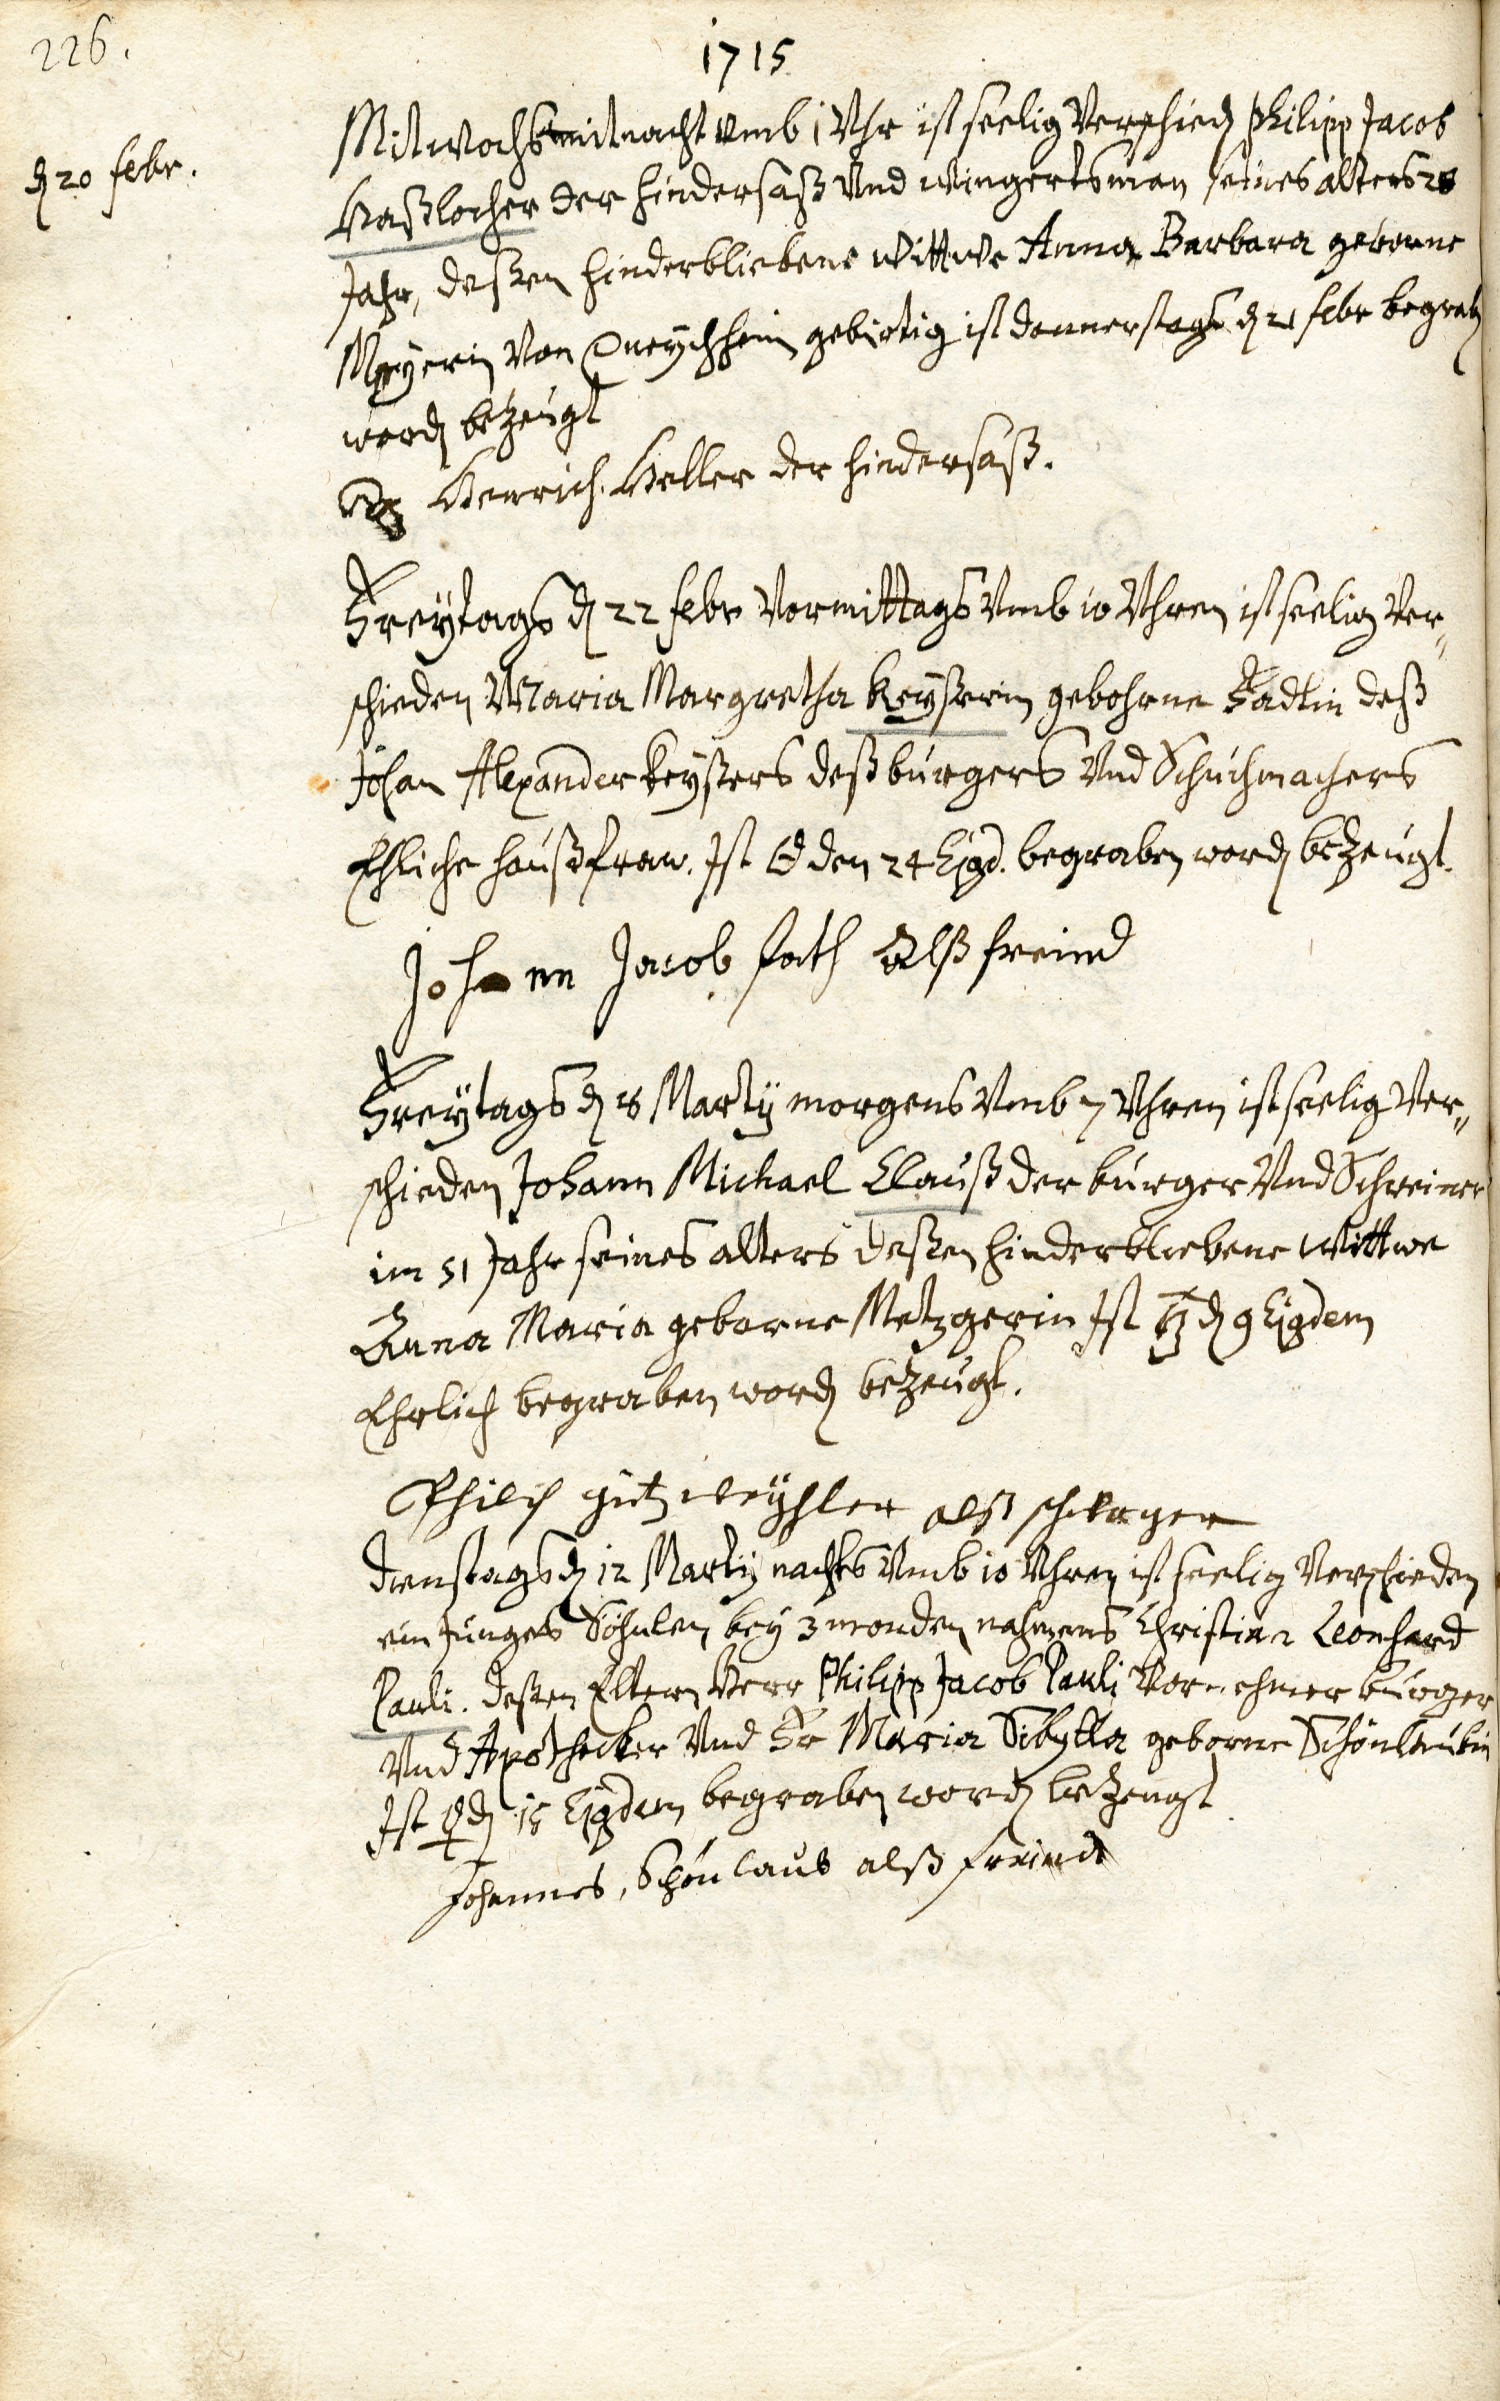 226.
1715
d 20 febr.
Mitwochs mitnacht umb 1 Uhr ist seelig verschied Philipp Jacob
Haßlocher der hindersaß und wingertsman seines alters 28
Jahr, deßen hinderbliebene Wittwe Anna Barbara geborne
Meyerin von Queychheim gebirtig ist donnerstags d 21 febr begrab
word bezeugt
Henrich Keller der hindersaß.
Freytags d 22 febr vormittags umb 10 Uhren ist seelig ver„
schieden Maria Margretha Keyserin gebohrne Fadtin deß
Johan Alexander Keyßers deß burgers und Schuchmachers
Ehliche haußfraw. Ist ☉ den 24 Ejqd. begraben word bezeugt.
Johann Jacob fath Alß freund
Freytags d 8 Martij morgens umb 7 Uhren ist seelig ver„
schieden Johann Michael Clauß der burger und Schreiner
im 51 Jahr seines alters deßen hinderbliebene Wittwe
Anna Maria geborne Metzgerin Ist ♄ d 9 Ejqdem
Ehrlich begraben word bezeugt.
Philip alß schwager
Dienstags d 12 Martij nachts umb 10 Uhren ist seelig verschieden
ein Junges Söhnlen bey 3 monden nahmens Christian Leonhard
Pauli. deßen Eltern Herr Philipp Jacob Pauli vornehmer burger
und Apothecker und Fr Maria Sibylla geborne Schönlaubin
Ist ♀ d 15 Ejqdem begraben word bezeugt
Johannes, Schönlaub alß freundt